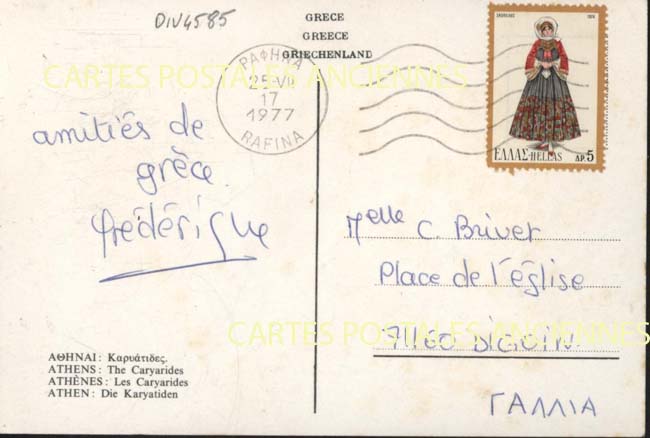 DIV4585
GRECE
GREECE
GRIECHENLAND
ΡΑΦΗΝΑ
25 VII
17
1977
RAFINA
ΕΛΛΑΣ-HELLAS
ΔΡ.5
CARTES POSTALES ANCIENNES
amitiés de
grèce.
frédérique
Melle C. Brivet
Place de l'église
71160 DIGOIN
ΓΑΛΛΙΑ
CARTES POSTALES ANCIENNES
ΑΘΗΝΑΙ: Καρυάτιδες.
ATHENS: The Caryarides
ATHÈNES: Les Caryarides
ATHEN: Die Karyatiden